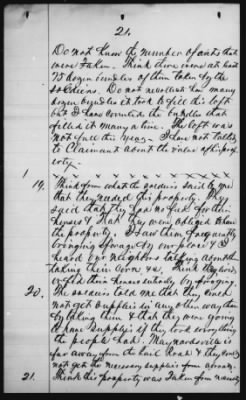 21.
Do not know the number of oats that
were taken. Think there were at least
75 dozen bundles of them taken by the
soldiers. Do not recollect how many
dozen bundles it took to fill this loft
but I have counted the bundles that
filled it many a time. The loft was
not full this year. I have not talked
to Claimant about the value of his prop-
erty.
1
19. Think from what the soldiers said to me
that they needed this property. They
said that they had no feed for their
horses & that they were obliged to have
the property. I saw them frequently
bringing forage by our place & I
heard our neighbors talking about their
taking their corn &a. Think they lived
while there almost wholly by foraging.
20. The soldiers told me that they could
not get supplies in any other way than
by taking them & that they were going
to have supplies if they took everything
the people had. Maynardsville is
far away from the Rail Road & they could
not get the necessary supplies from abroad.
21. Think this property was taken from necessity